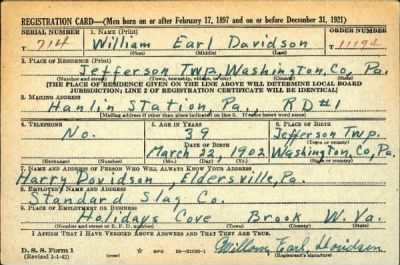 REGISTRATION CARD—(Men born on or after February 17, 1897 and on or before December 31, 1921)
SERIAL NUMBER 1. NAME (Print) ORDER NUMBER
T 714 William Earl Davidson 11194
(First) (Middle) (Last)
2. PLACE OF RESIDENCE (Print)
Jefferson Twp, Washington, Co, Pa.
(Number and street) (Town, township, village, or city) (County) (State)
[THE PLACE OF RESIDENCE GIVEN ON THE LINE ABOVE WILL DETERMINE LOCAL BOARD
JURISDICTION; LINE 2 OF REGISTRATION CERTIFICATE WILL BE IDENTICAL]
3. MAILING ADDRESS
Hanlin Station, Pa., RD#1
[Mailing address if other than place indicated on line 2. If same insert word same]
4. TELEPHONE 5. AGE IN YEARS 6. PLACE OF BIRTH
No. 39 Jefferson Twp.
DATE OF BIRTH (Town or county)
March 22, 1902 Washington, Co, Pa.
(Exchange) (Number) (Mo.) (Day) (Yr.) (State or country)
7. NAME AND ADDRESS OF PERSON WHO WILL ALWAYS KNOW YOUR ADDRESS
Harry Davidson, Eldersville, Pa.
8. EMPLOYER'S NAME AND ADDRESS
Standard Slag Co.
9. PLACE OF EMPLOYMENT OR BUSINESS
Holidays Cove Brook W. Va.
(Number and street or R. F. D. number) (Town) (County) (State)
I AFFIRM THAT I HAVE VERIFIED ABOVE ANSWERS AND THAT THEY ARE TRUE.
D. S. S. Form 1 GPO William Earl Davidson
(Revised 1-1-42) (Registrant's signature)